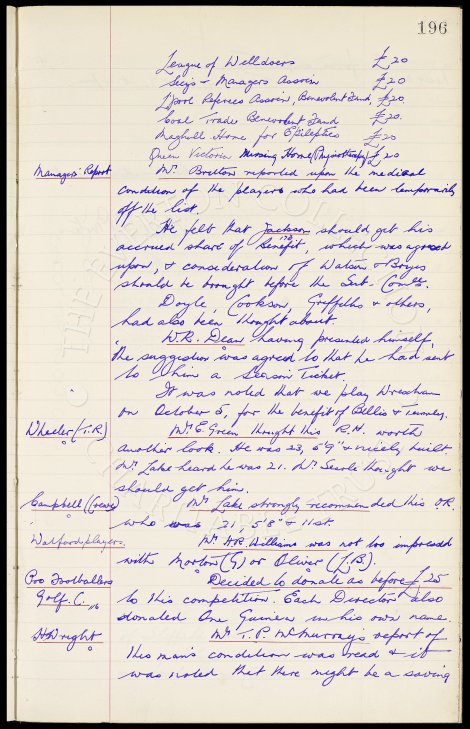 196
League of Welldoers £20
Secy's & Managers Assocn £20
L'pool Referees Assocn, Benevolent Fund, £20.
Coal Trade Benevolent Fund £20.
Maghull Home for Epileptics £20
Queen Victoria Nursing Home (Physiotherapy) £20
Managers' Report Mr. Britton reported upon the medical
condition of the players who had been temporarily
off the list.
He felt that Jackson should get his
accrued share of Benefit, which was agreed
upon, & consideration of Watson & Boyes
should be brought before the Sub-Comtee.
Doyle, Cookson, Griffiths & others,
had also been thought about.
W.R. Dean having presented himself,
the suggestion was agreed to that he had sent
to him a Season Ticket.
It was noted that we play Wrexham
on October 5, for the benefit of Bellis & Tunney.
Wheeler (T.R.) Mr. E. Green thought this R.H. worth
another look. He was 23, 5'9" & nicely built.
Mr. Lake heard he was 21. Mr. Searle thought we
should get him.
Campbell (Crewe) Mr. Lake strongly recommended this O.R.
who was 21, 5'8" & 11st.
Watford players. Mr. H.R. Williams was not too impressed
with Morton (G) or Oliver (L.B.)
Pro Footballers Decided to donate as before £25
Golf. C. to this competition. Each Director also
donated One Guinea in his own name.
H. Wright Mr. T. P. McMurray's report of
this man's condition was read & it
was noted that there might be a saving